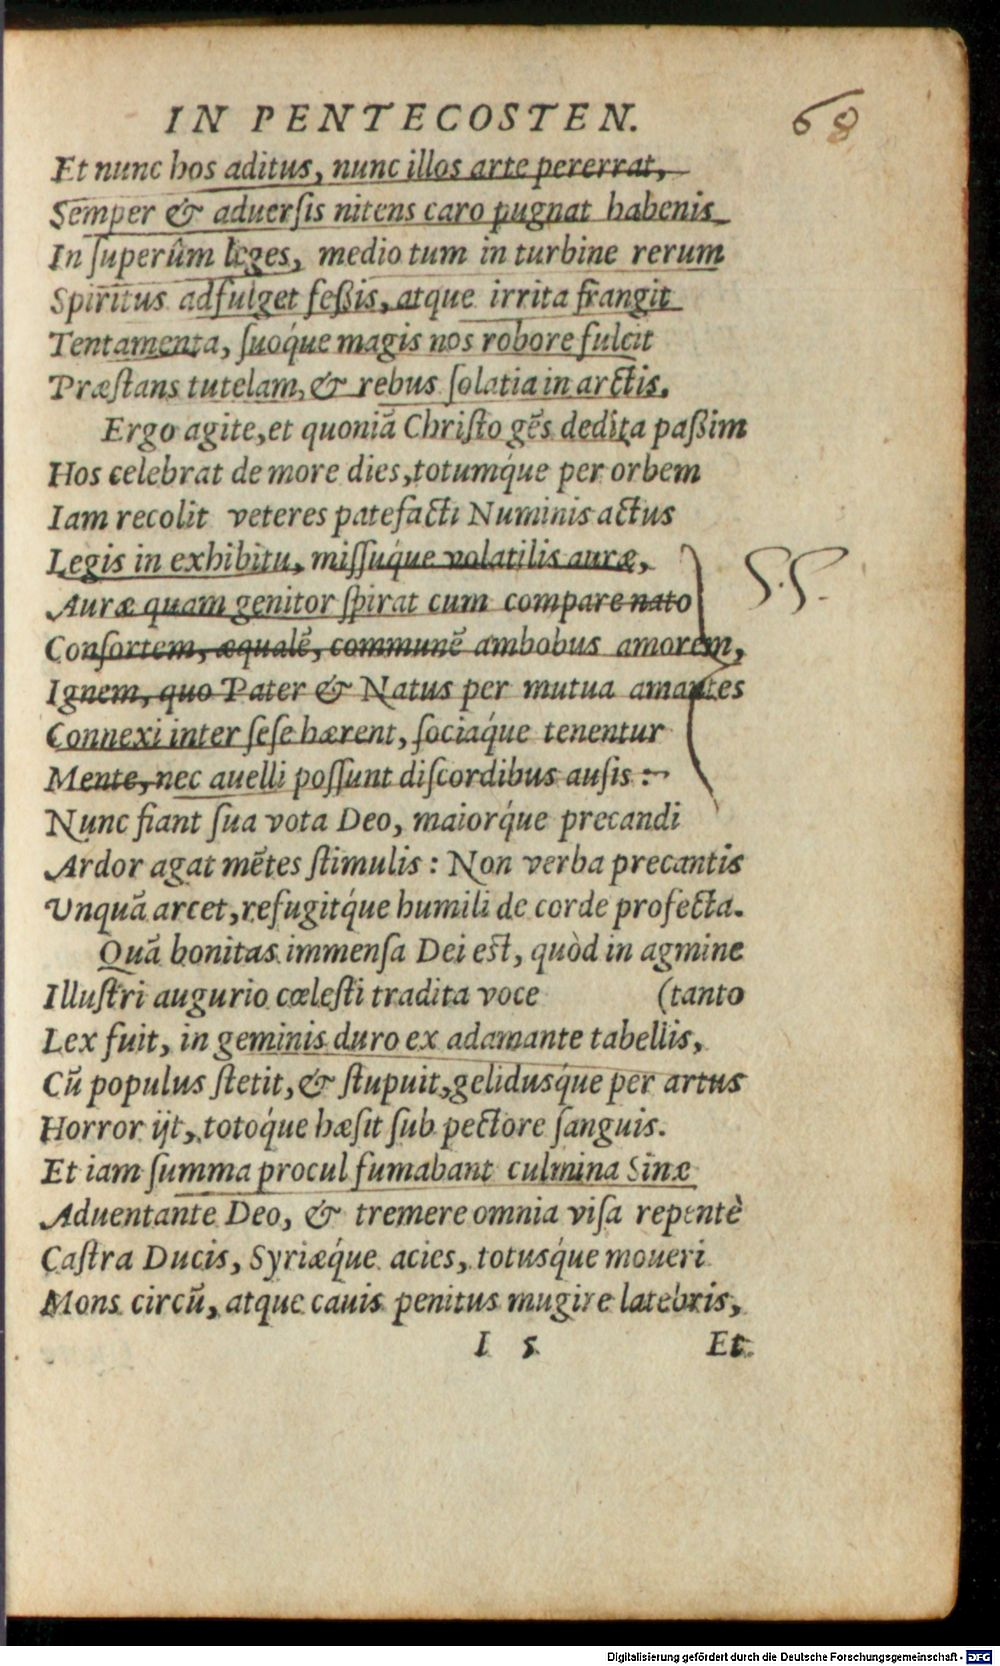 IN PENTECOSTEN.
68
Et nunc hos aditus, nunc illos arte pererrat,
Semper & aduersis nitens caro pugnat habenis
In superûm leges, medio tum in turbine rerum
Spiritus adfulget feßis, atque irrita frangit
Tentamenta, suoq́ue magis nos robore fulcit
Præstans tutelam, & rebus solatia in arctis.
Ergo agite, et quoniā Christo gēs dedita paßim
Hos celebrat de more dies, totumq́ue per orbem
Iam recolit veteres patefacti Numinis actus
Legis in exhibitu, missuq́ue volatilis auræ,
Auræ quam genitor spirat cum compare nato
S.S.
Consortem, æqualē, communē ambobus amorem,
Ignem, quo Pater & Natus per mutua amantes
Connexi inter sese hærent, sociaq́ue tenentur
Mente, nec auelli possunt discordibus ausis:
Nunc fiant sua vota Deo, maiorq́ue precandi
Ardor agat mētes stimulis: Non verba precantis
Vnquā arcet, refugitq́ue humili de corde profecta.
Quā bonitas immensa Dei est, quòd in agmine
Illustri augurio cælesti tradita voce (tanto
Lex fuit, in geminis duro ex adamante tabellis,
Cū populus stetit, & stupuit, gelidusq́ue per artus
Horror ijt, totoq́ue hæsit sub pectore sanguis.
Et iam summa procul fumabant culmina Sinæ
Aduentante Deo, & tremere omnia visa repentè
Castra Ducis, Syriæq́ue acies, totusq́ue moueri
Mons circū, atque cauis penitus mugire latebris,
I 5 Et
Digitalisierung gefördert durch die Deutsche Forschungsgemeinschaft - DFG